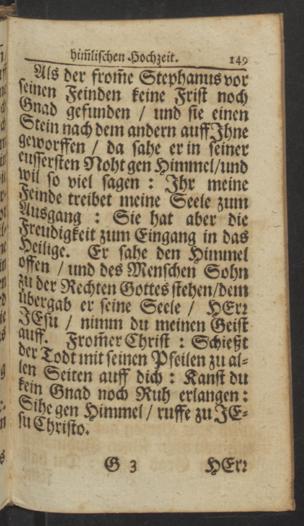 himlischen Hochzeit. 149
Als der from̃e Stephanus vor
seinen Feinden keine Frist noch
Gnad gefunden / und sie einen
Stein nach dem andern auff Ihne
geworffen / da sahe er in seiner
eussersten Noht gen Himmel / und
wil so viel sagen : Ihr meine
Feinde treibet meine Seele zum
Ausgang : Sie hat aber die
Freudigkeit zum Eingang in das
Heilige. Er sahe den Himmel
offen / und des Menschen Sohn
zu der Rechten Gottes stehen / dem
übergab er seine Seele / HErꝛ
JEsu / nimm du meinen Geist
auff. From̃er Christ : Schießt
der Todt mit seinen Pfeilen zu al-
len Seiten auff dich : Kanst du
kein Gnad noch Ruh erlangen :
Sihe gen Himmel / ruffe zu JE-
su Christo.
G 3 HErꝛ